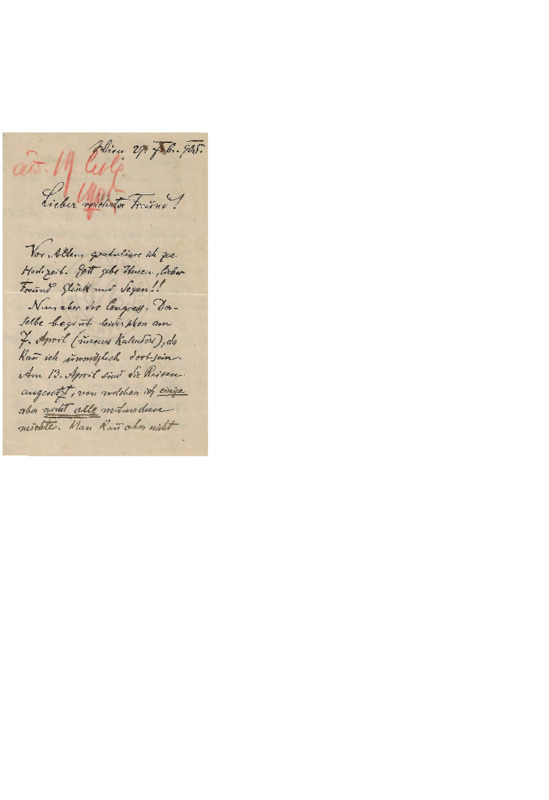 Wien 27 Feb. 905.
Lieber verehrter Freund!
Vor Allem gratuliere ich zur
Hochzeit. Gott gebe Ihnen, lieber
Freund Glück und Segen!!
Nun aber der Congress. Der-
selbe beginnt leider schon am
7. April (unseres Kalenders), da
kañ ich unmöglich dort sein.
Am 13. April sind die Reisen
angesetzt, von welchen ich einige
aber nicht alle mitmachen
möchte. Man kañ aber nicht